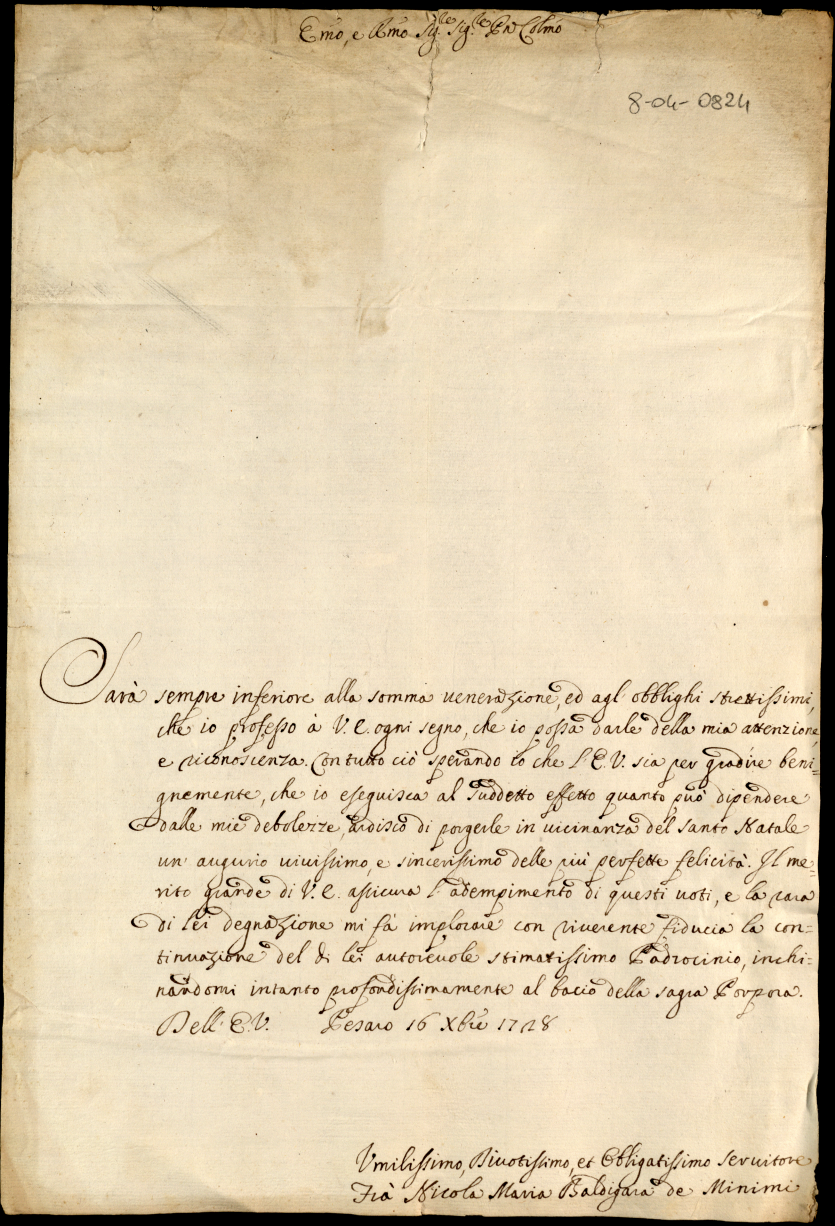 Emo, e Rmo Sig.re Sig.re Pne Colmo
8-04-0824
Sarà sempre inferiore alla somma venerazione, ed agl' obblighi strettissimi,
che io professo à V. E. ogni segno, che io possa darle della mia attenzione,
e riconoscenza. Con tutto ciò sperando io che l'E. V. sia per gradire beni=
gnemente, che io eseguisca al suddetto effetto quanto può dipendere
dalle mie debolezze, ardisco di porgerle in vicinanza del santo Natale
un' augurio vivissimo, e sincerissimo delle più perfette felicità. Il me=
rito grande di V. E. assicura l' adempimento di questi voti, e la rara
di lei degnazione mi fà implorare con riverente fiducia la con=
tinuazione del di lei autorevole stimatissimo Padrocinio, inchi=
nandomi intanto profondissimamente al bacio della sagra Porpora.
Dell' E. V. Pesaro 16 Xbre 1728
Umilissimo, Divotissimo, et Obbligatissimo Servitore
Frà Nicola Maria Baldigara de Minimi